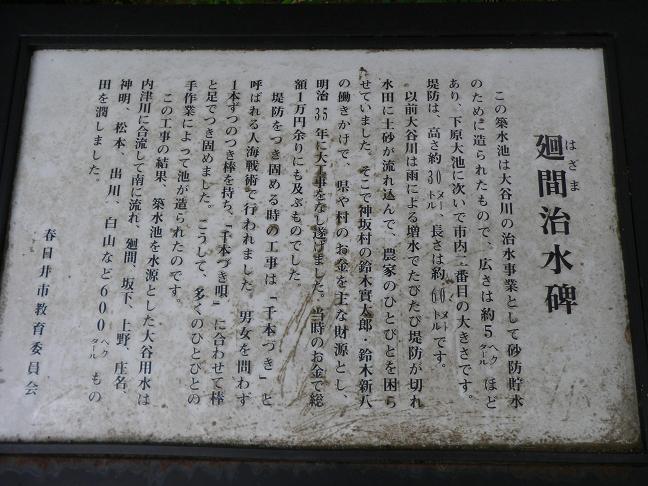 廻間治水碑
はざま
この築水池は大谷川の治水事業として砂防貯水
のために造られたもので、広さは約5ヘクタールほど
あり、下原大池に次いで市内二番目の大きさです。
堤防は、高さ約30メートル、長さは約60メートルです。
以前大谷川は雨による増水でたびたび堤防が切れ
水田に土砂が流れ込んで、農家のひとびとを困ら
せていました。そこで神坂村の鈴木實太郎・鈴木新八
の働きかけで、県や村のお金を主な財源とし、
明治35年に大工事をなし遂げました。当時のお金で総
額1万円余りにも及ぶものでした
堤防をつき固める時の工事は「千本づき」と
呼ばれる人海戦術で行われました。男女を問わず
1本ずつのつき棒を持ち、「千本づき唄」に合わせて棒
と足でつき固めました。こうして、多くのひとびとの
手作業によって池が造られたのです。
この工事の結果、築水池を水源とした大谷用水は
内津川に合流して南に流れ、廻間、坂下、上野、庄名、
神明、松本、出川、白山など600ヘクタールもの
田を潤しました。
春日井市教育委員会